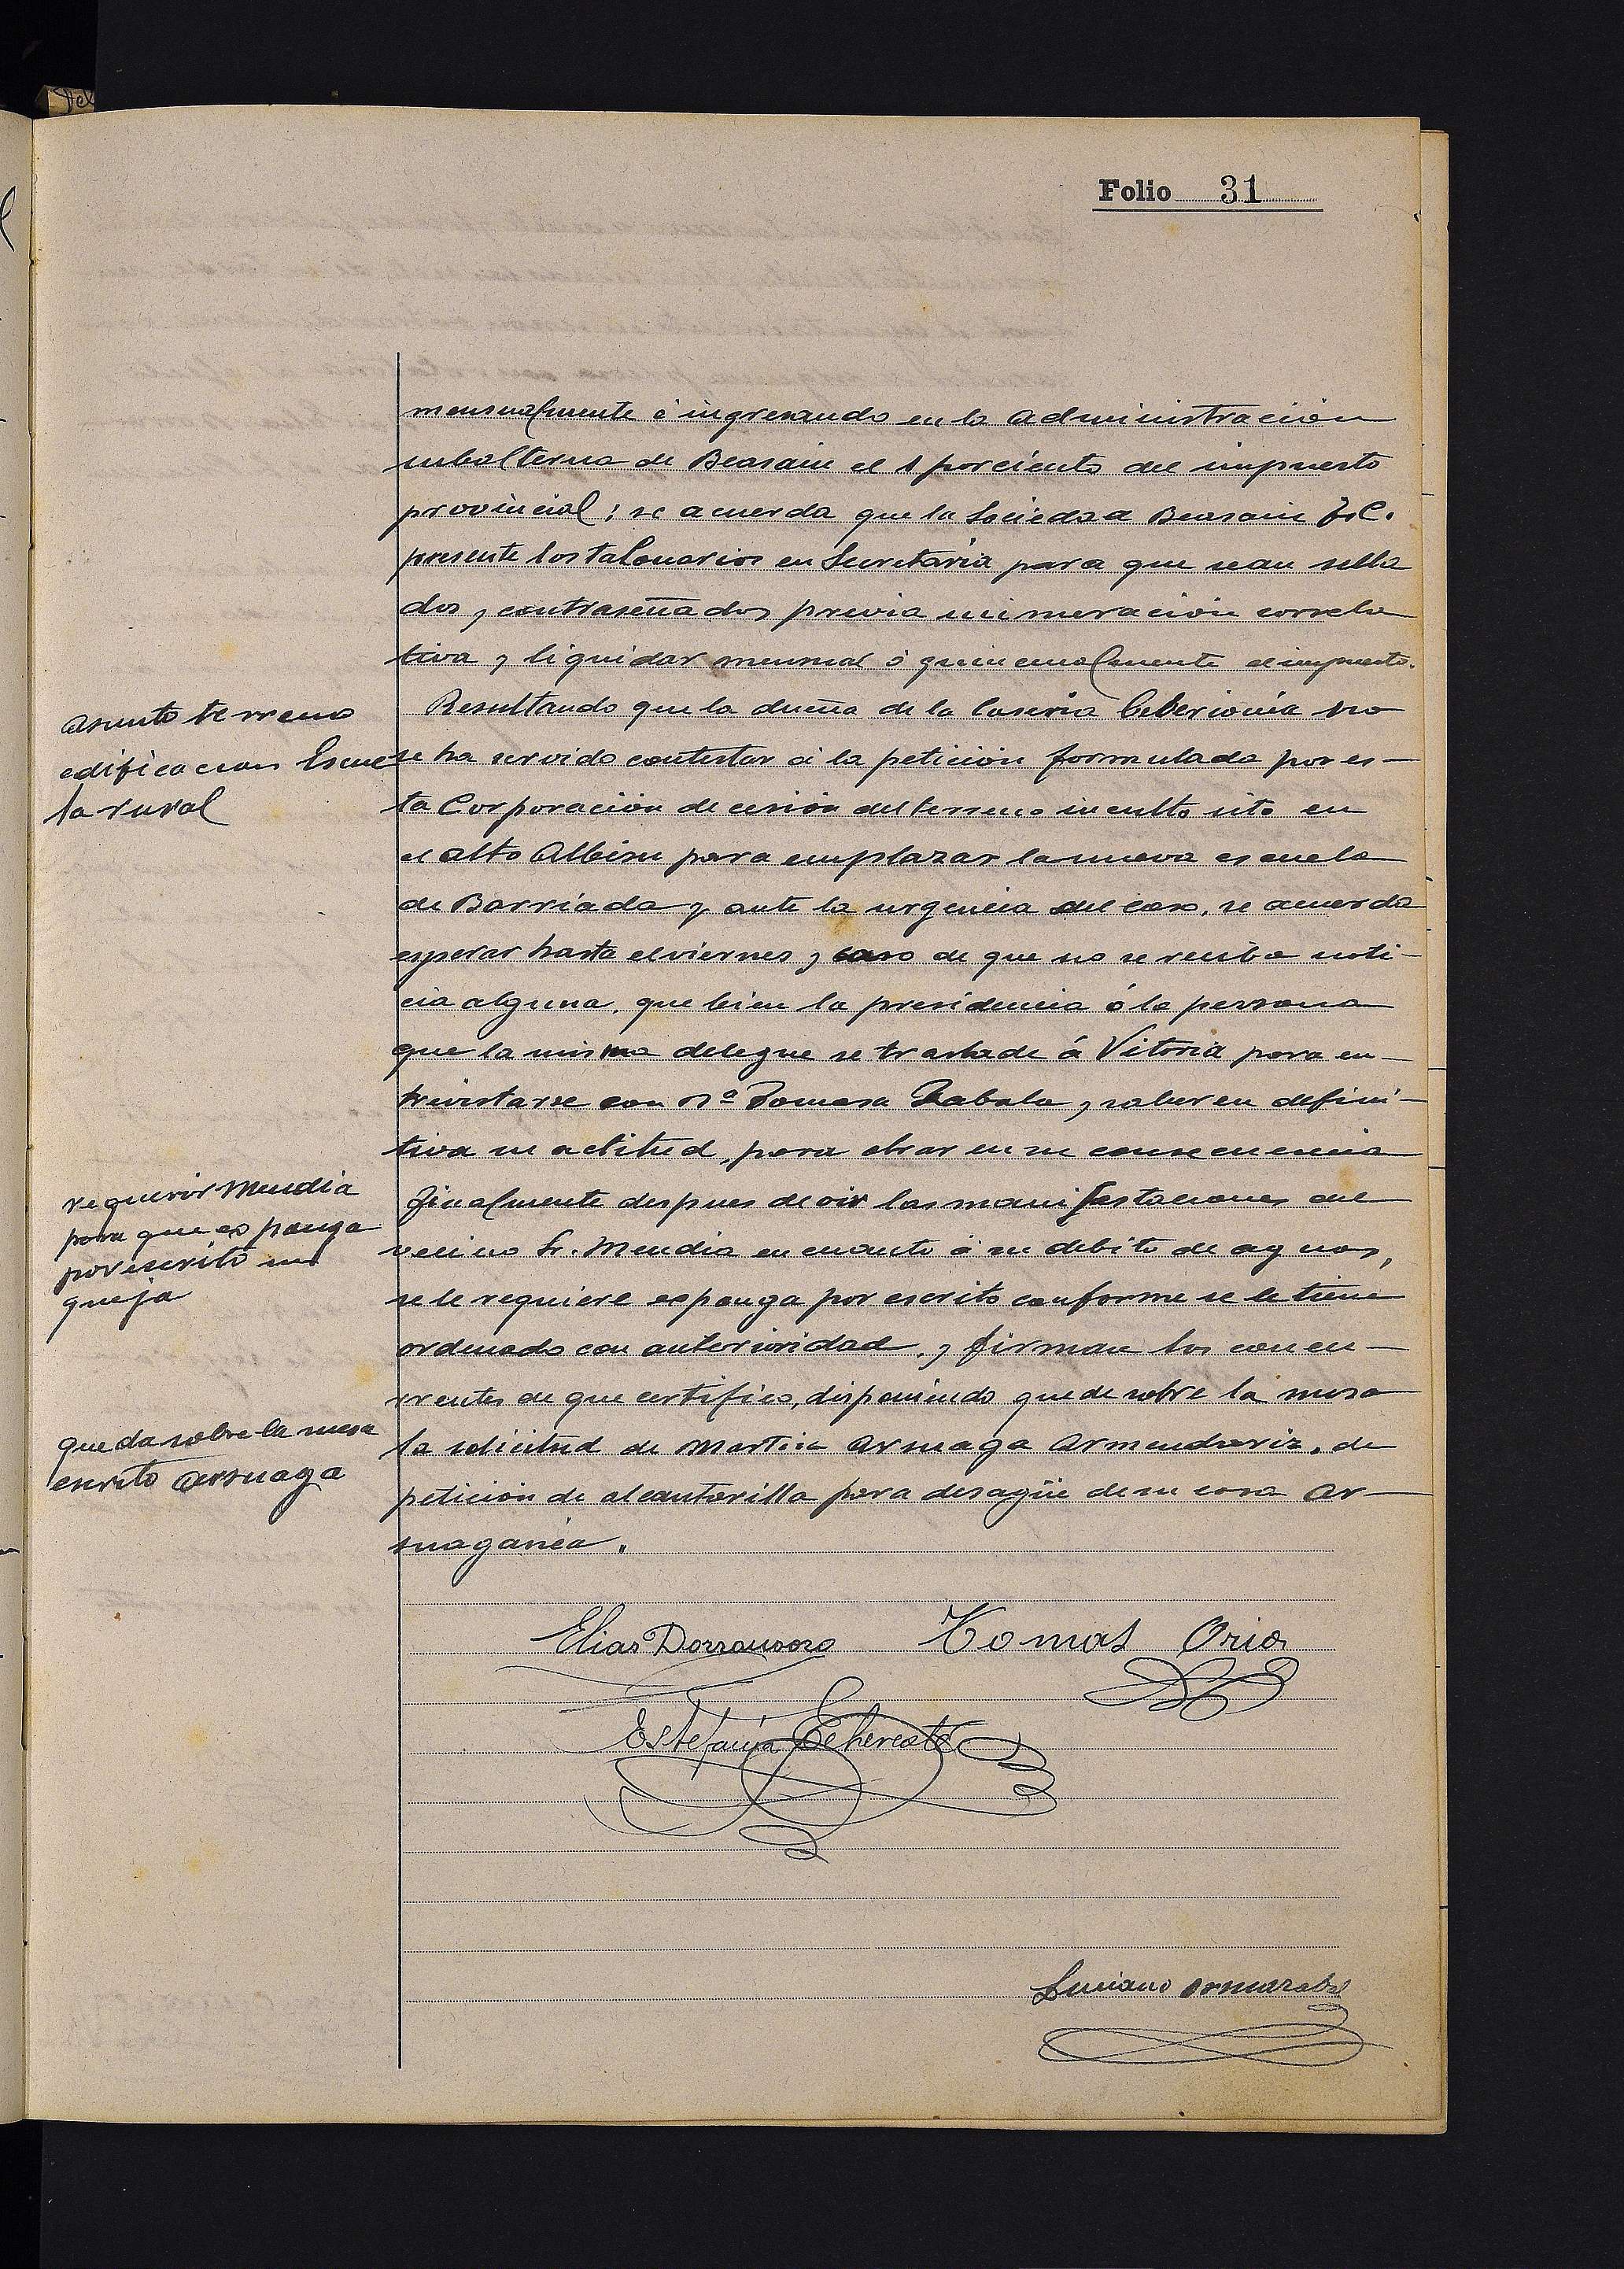 Folio 31
mensualmente é ingresando en la administración
subalterna de Beasain el 1 porciento del impuesto
provincial; se acuerda que la Sociedad Beasain F.C.
presente los talonarios en Secretaría para que sean sella
dos, contraseñados previa numeración correla
tiva y liquidar mensual ó quincenalmente el impuesto.
asunto terreno
edificacion Escue
la rural
Resultando que la dueña de la Caseria Ceberionia no
se ha servido contestar á la petición formulada por es-
ta Corporación de cesión del terreno inculto sito en
el alto Albisu para emplazar la nueva escuela
de Barriada y ante la urgencia del caso, se acuerda
esperar hasta el viernes y caso de que no se reciba noti-
cia alguna, que bien la presidencia ó la persona
que la misma delegue se traslade á Vitoria para en-
trevistarse con Dª Tomasa Zabala y saber en defini-
tiva su actitud, para obrar en su consecuencia
requerir Mendia
para que exponga
por escrito su
queja
Finalmente despues de oir las manifestaciones del
vecino Sr. Mendia en cuanto á su debito de aguas,
se le requiere exponga por escrito conforme se le tiene
ordenado con anterioridad, y firman los concu-
rrentes de que certifico, disponiendo quede sobre la mesa
queda sobre la mesa
escrito Arsuaga
la solicitud de Martin Arsuaga Armendariz, de
petición de alcantarilla para desagüe de su casa Ar-
suaganea.
Elias Dorronsoro Tomas Oria
Estefania Echeveste
Luciano Ormazabal